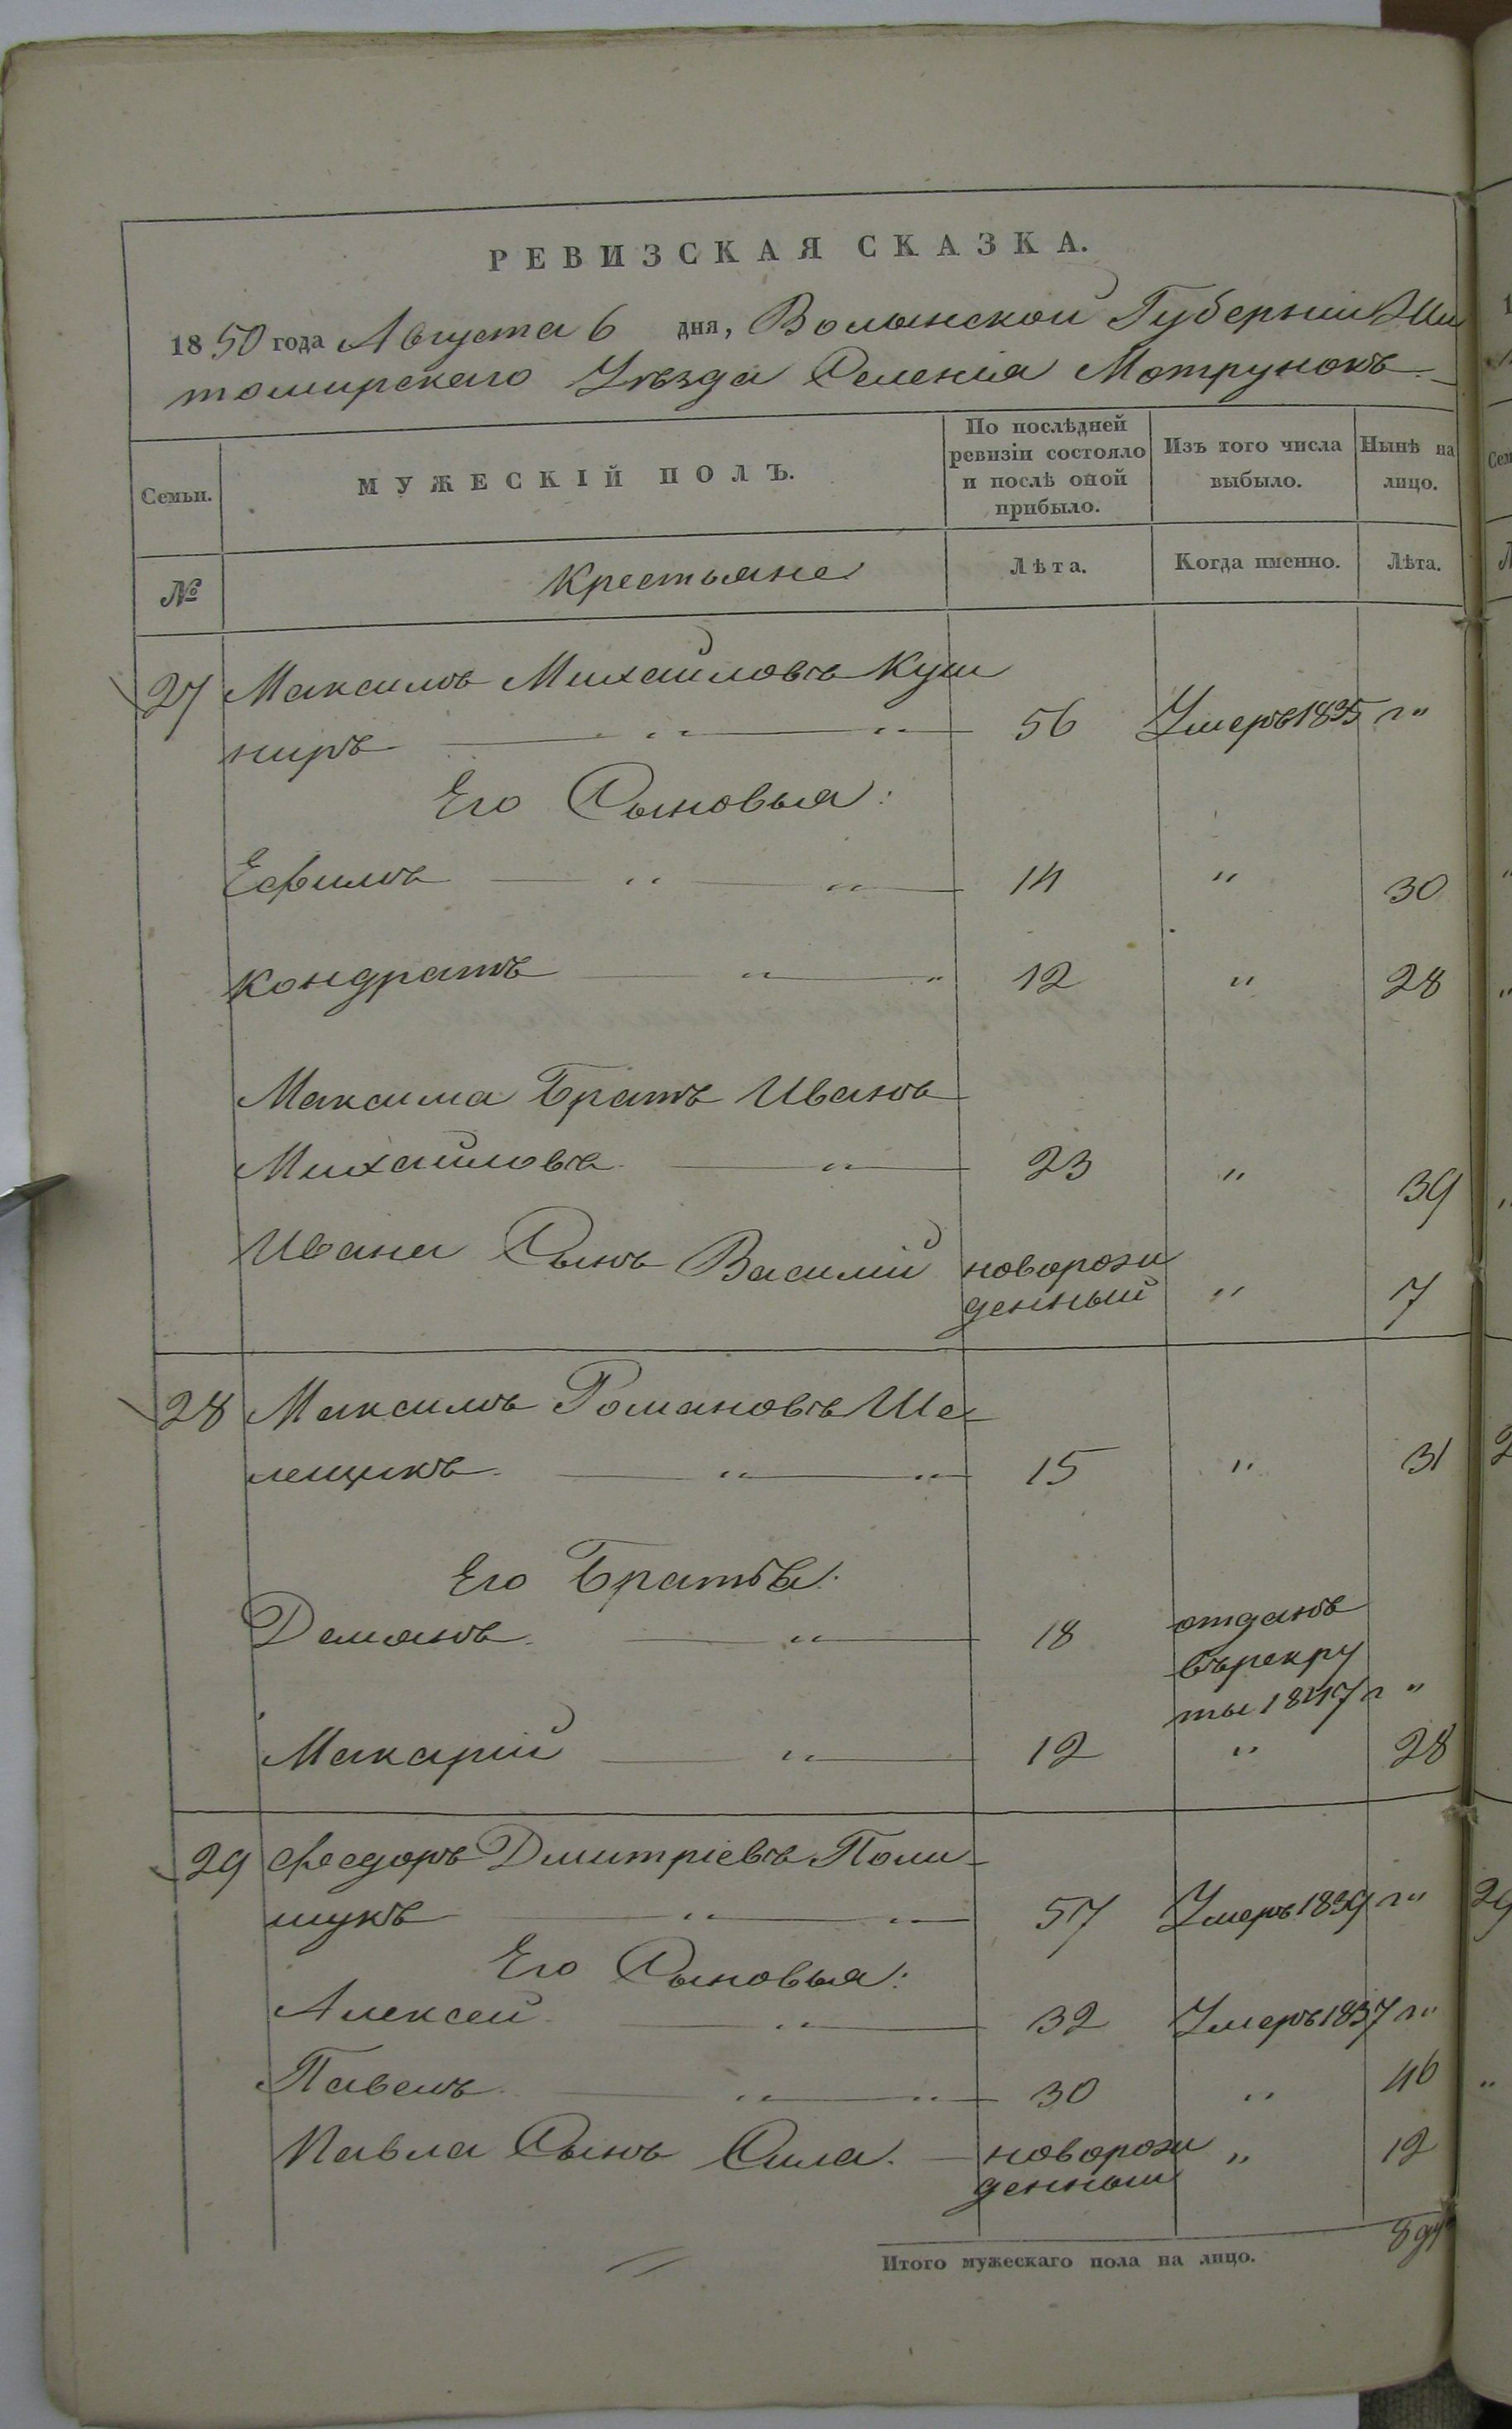 РЕВИЗСКАЯ СКАЗКА.
1850 года Августа 6 дня, Волынской Губерніи Жи
томирскаго Уѣзда Селенія Мотрунокъ
Семьи.
МУЖЕСКІЙ ПОЛЪ.
По послѣдней
ревизіи состояло
и послѣ оной
прибыло.
Изъ того числа
выбыло.
Нынѣ на
лицо.
№
Крестьяне
Лѣта.
Когда именно.
Лѣта.
27 Максимъ Михайловъ Куш
ниръ — „ — „ — 56 Умеръ 1835 г „
Его Сыновья:
Ефимъ — „ — „ — 14 „ 30
Кондратъ — „ — „ 12 „ 28
Максима Братъ Иванъ
Михайловъ — „ — 23 „ 39
Ивана Сынъ Василій новорож
денный „ 7
28 Максимъ Романовъ Ше-
лещукъ — „ — „ — 15 „ 31
Его Братья:
Демянъ — „ — 18 отданъ
въ рекру
ты 1847 г „
Макарій — „ — 12 „ 28
29 Федоръ Дмитріевъ Поли-
щукъ — „ — „ — 57 Умеръ 1839 г „
Его Сыновья:
Алексей — „ — 32 Умеръ 1837 г „
Павелъ — „ — „ — 30 „ 46
Павла Сынъ Сила. — новорож
денный „ 12
Итого мужескаго пола на лицо.